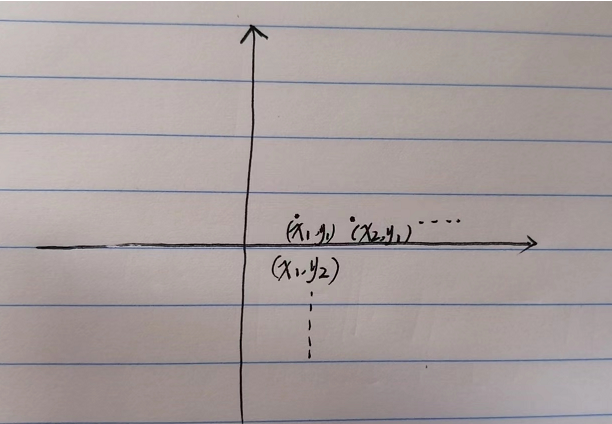 (x₁,y₁) (x₂,y₁) ----
(x₁,y₂)